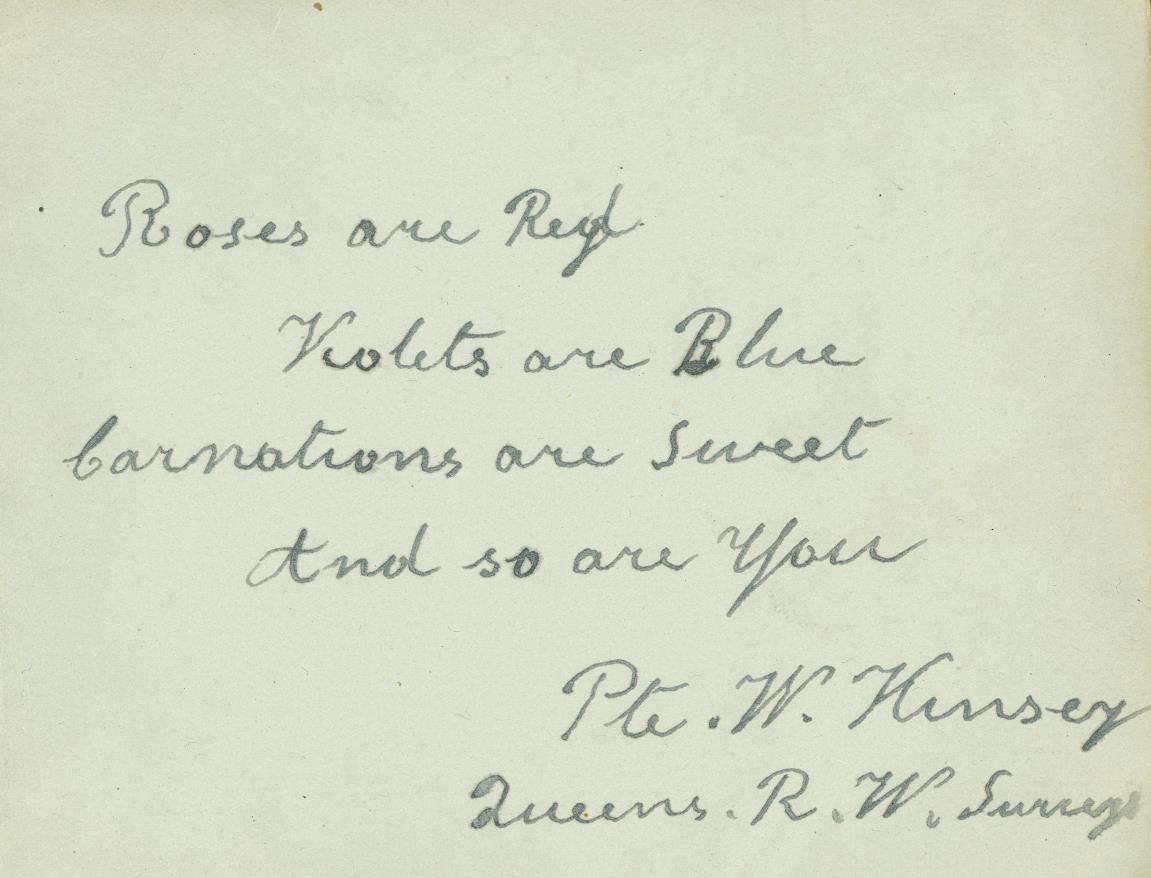 Roses are Red
Violets are Blue
Carnations are Sweet
And so are You
Pte. W. Hinsey
Queens. R. W. Surreys